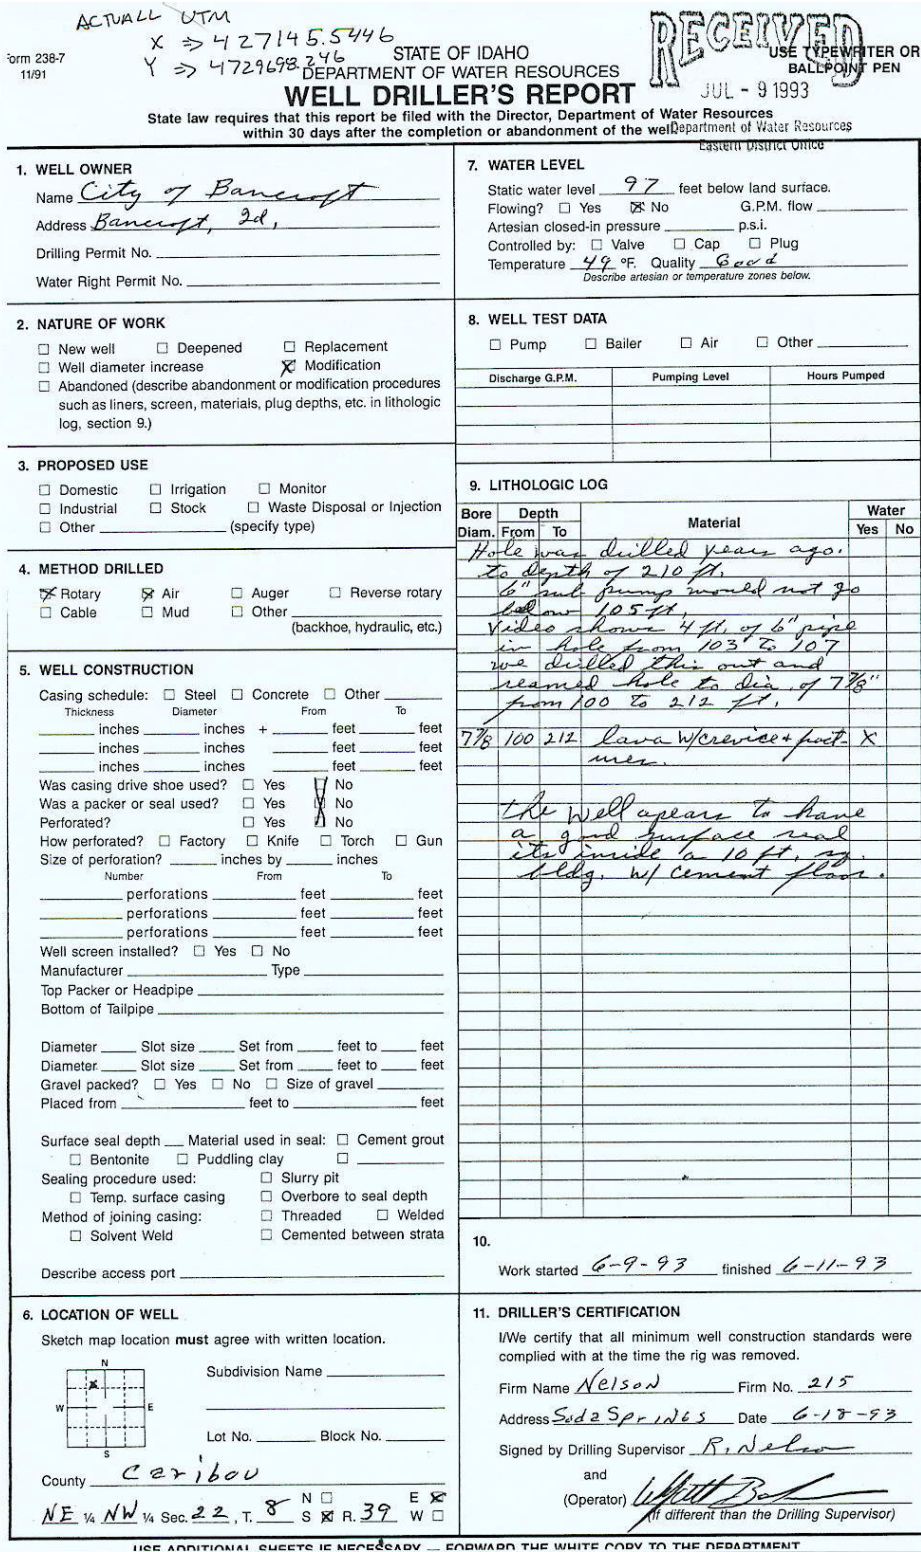 ACTUALL UTM
X => 427145.5446
Y => 4729698.246
form 238-7
11/91
STATE OF IDAHO
DEPARTMENT OF WATER RESOURCES
WELL DRILLER'S REPORT
RECEIVED
JUL - 9 1993
USE TYPEWRITER OR
BALLPOINT PEN
State law requires that this report be filed with the Director, Department of Water Resources
within 30 days after the completion or abandonment of the well
Department of Water Resources
Eastern District Office
1. WELL OWNER
Name City of Bancroft
Address Bancroft, Id,
Drilling Permit No.
Water Right Permit No.
2. NATURE OF WORK
☐ New well ☐ Deepened ☐ Replacement
☐ Well diameter increase ☒ Modification
☐ Abandoned (describe abandonment or modification procedures
such as liners, screen, materials, plug depths, etc. in lithologic
log, section 9.)
3. PROPOSED USE
☐ Domestic ☐ Irrigation ☐ Monitor
☐ Industrial ☐ Stock ☐ Waste Disposal or Injection
☐ Other (specify type)
4. METHOD DRILLED
☒ Rotary ☒ Air ☐ Auger ☐ Reverse rotary
☐ Cable ☐ Mud ☐ Other
(backhoe, hydraulic, etc.)
5. WELL CONSTRUCTION
Casing schedule: ☐ Steel ☐ Concrete ☐ Other
Thickness Diameter From To
inches inches + feet feet
inches inches feet feet
inches inches feet feet
Was casing drive shoe used? ☐ Yes ☒ No
Was a packer or seal used? ☐ Yes ☒ No
Perforated? ☐ Yes ☒ No
How perforated? ☐ Factory ☐ Knife ☐ Torch ☐ Gun
Size of perforation? inches by inches
Number From To
perforations feet feet
perforations feet feet
perforations feet feet
Well screen installed? ☐ Yes ☐ No
Manufacturer Type
Top Packer or Headpipe
Bottom of Tailpipe
Diameter Slot size Set from feet to feet
Diameter Slot size Set from feet to feet
Gravel packed? ☐ Yes ☐ No ☐ Size of gravel
Placed from feet to feet
Surface seal depth Material used in seal: ☐ Cement grout
☐ Bentonite ☐ Puddling clay ☐
Sealing procedure used: ☐ Slurry pit
☐ Temp. surface casing ☐ Overbore to seal depth
Method of joining casing: ☐ Threaded ☐ Welded
☐ Solvent Weld ☐ Cemented between strata
Describe access port
6. LOCATION OF WELL
Sketch map location must agree with written location.
N
W E
S
Subdivision Name
Lot No. Block No.
County Caribou
NE ¼ NW ¼ Sec. 22, T. 8 N ☐ S ☒ R. 39 E ☒ W ☐
7. WATER LEVEL
Static water level 97 feet below land surface.
Flowing? ☐ Yes ☒ No G.P.M. flow
Artesian closed-in pressure p.s.i.
Controlled by: ☐ Valve ☐ Cap ☐ Plug
Temperature 49 °F. Quality Good
Describe artesian or temperature zones below.
8. WELL TEST DATA
☐ Pump ☐ Bailer ☐ Air ☐ Other
Discharge G.P.M. Pumping Level Hours Pumped
9. LITHOLOGIC LOG
Bore Diam. Depth From To Material Water Yes No
Hole was drilled years ago.
to depth of 210 ft.
6" sub pump would not go
below 105 ft.
Video shows 4 ft. of 6" pipe
in hole from 103 to 107
we drilled this out and
reamed hole to dia. of 7 7/8"
from 100 to 212 ft.
7 7/8 100 212 lava w/crevice + fract- X
ures.
the well apears to have
a good surface seal
its inside a 10 ft. sq.
bldg. w/ cement floor.
10.
Work started 6-9-93 finished 6-11-93
11. DRILLER'S CERTIFICATION
I/We certify that all minimum well construction standards were
complied with at the time the rig was removed.
Firm Name Nelson Firm No. 215
Address Soda Springs Date 6-18-93
Signed by Drilling Supervisor R. Nelson
and
(Operator)
(If different than the Drilling Supervisor)
USE ADDITIONAL SHEETS IF NECESSARY — FORWARD THE WHITE COPY TO THE DEPARTMENT